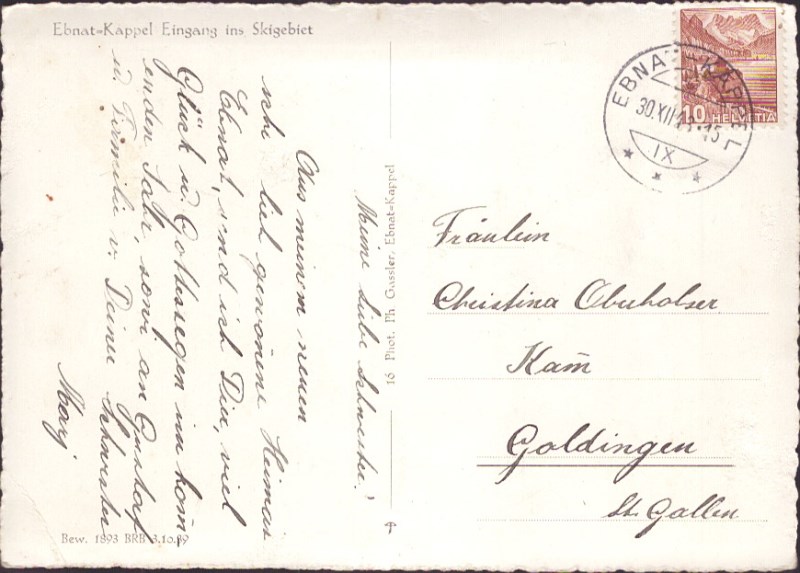 Ebnat-Kappel Eingang ins Skigebiet
Meine liebe Schwester!
Aus meinem neuen
sehr lieb gewonene Heimat
Ebnat, send ich Dir, viel
Glück u. Gottessegen im kom̄
enden Jahr, sowie an Gustav
u. Familie v. Deiner Schwester
Marj
16 Phot. Ph Gassler, Ebnat-Kappel
Bew. 1893 BRB 3.10.39
EBNAT-KAPPEL
30.XII
15
IX
10 HELVETIA
Fräulein
Christina Oberholzer
Kam̄
Goldingen
St. Gallen